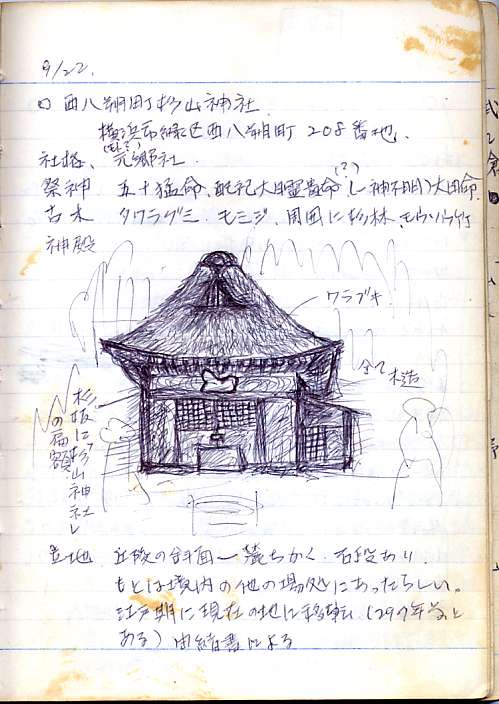 9/22.
□ 西八朔町杉山神社
横浜市緑区西八朔町 208番地.
社格、元郷社
祭神 五十猛命、配祀大日孁貴命、
(?)
古木 タワラグミ、モミジ、周囲に杉林、モウソウ竹
神殿
ワラブキ
全て木造
杉板に「杉山神社」
の扁額
立地 丘陵の斜面ー麓ちかく. 石段あり
もとは境内の他の場処にあったらしい。
江戸期に現在の地に移転 (297年前と
ある) 由緒書による